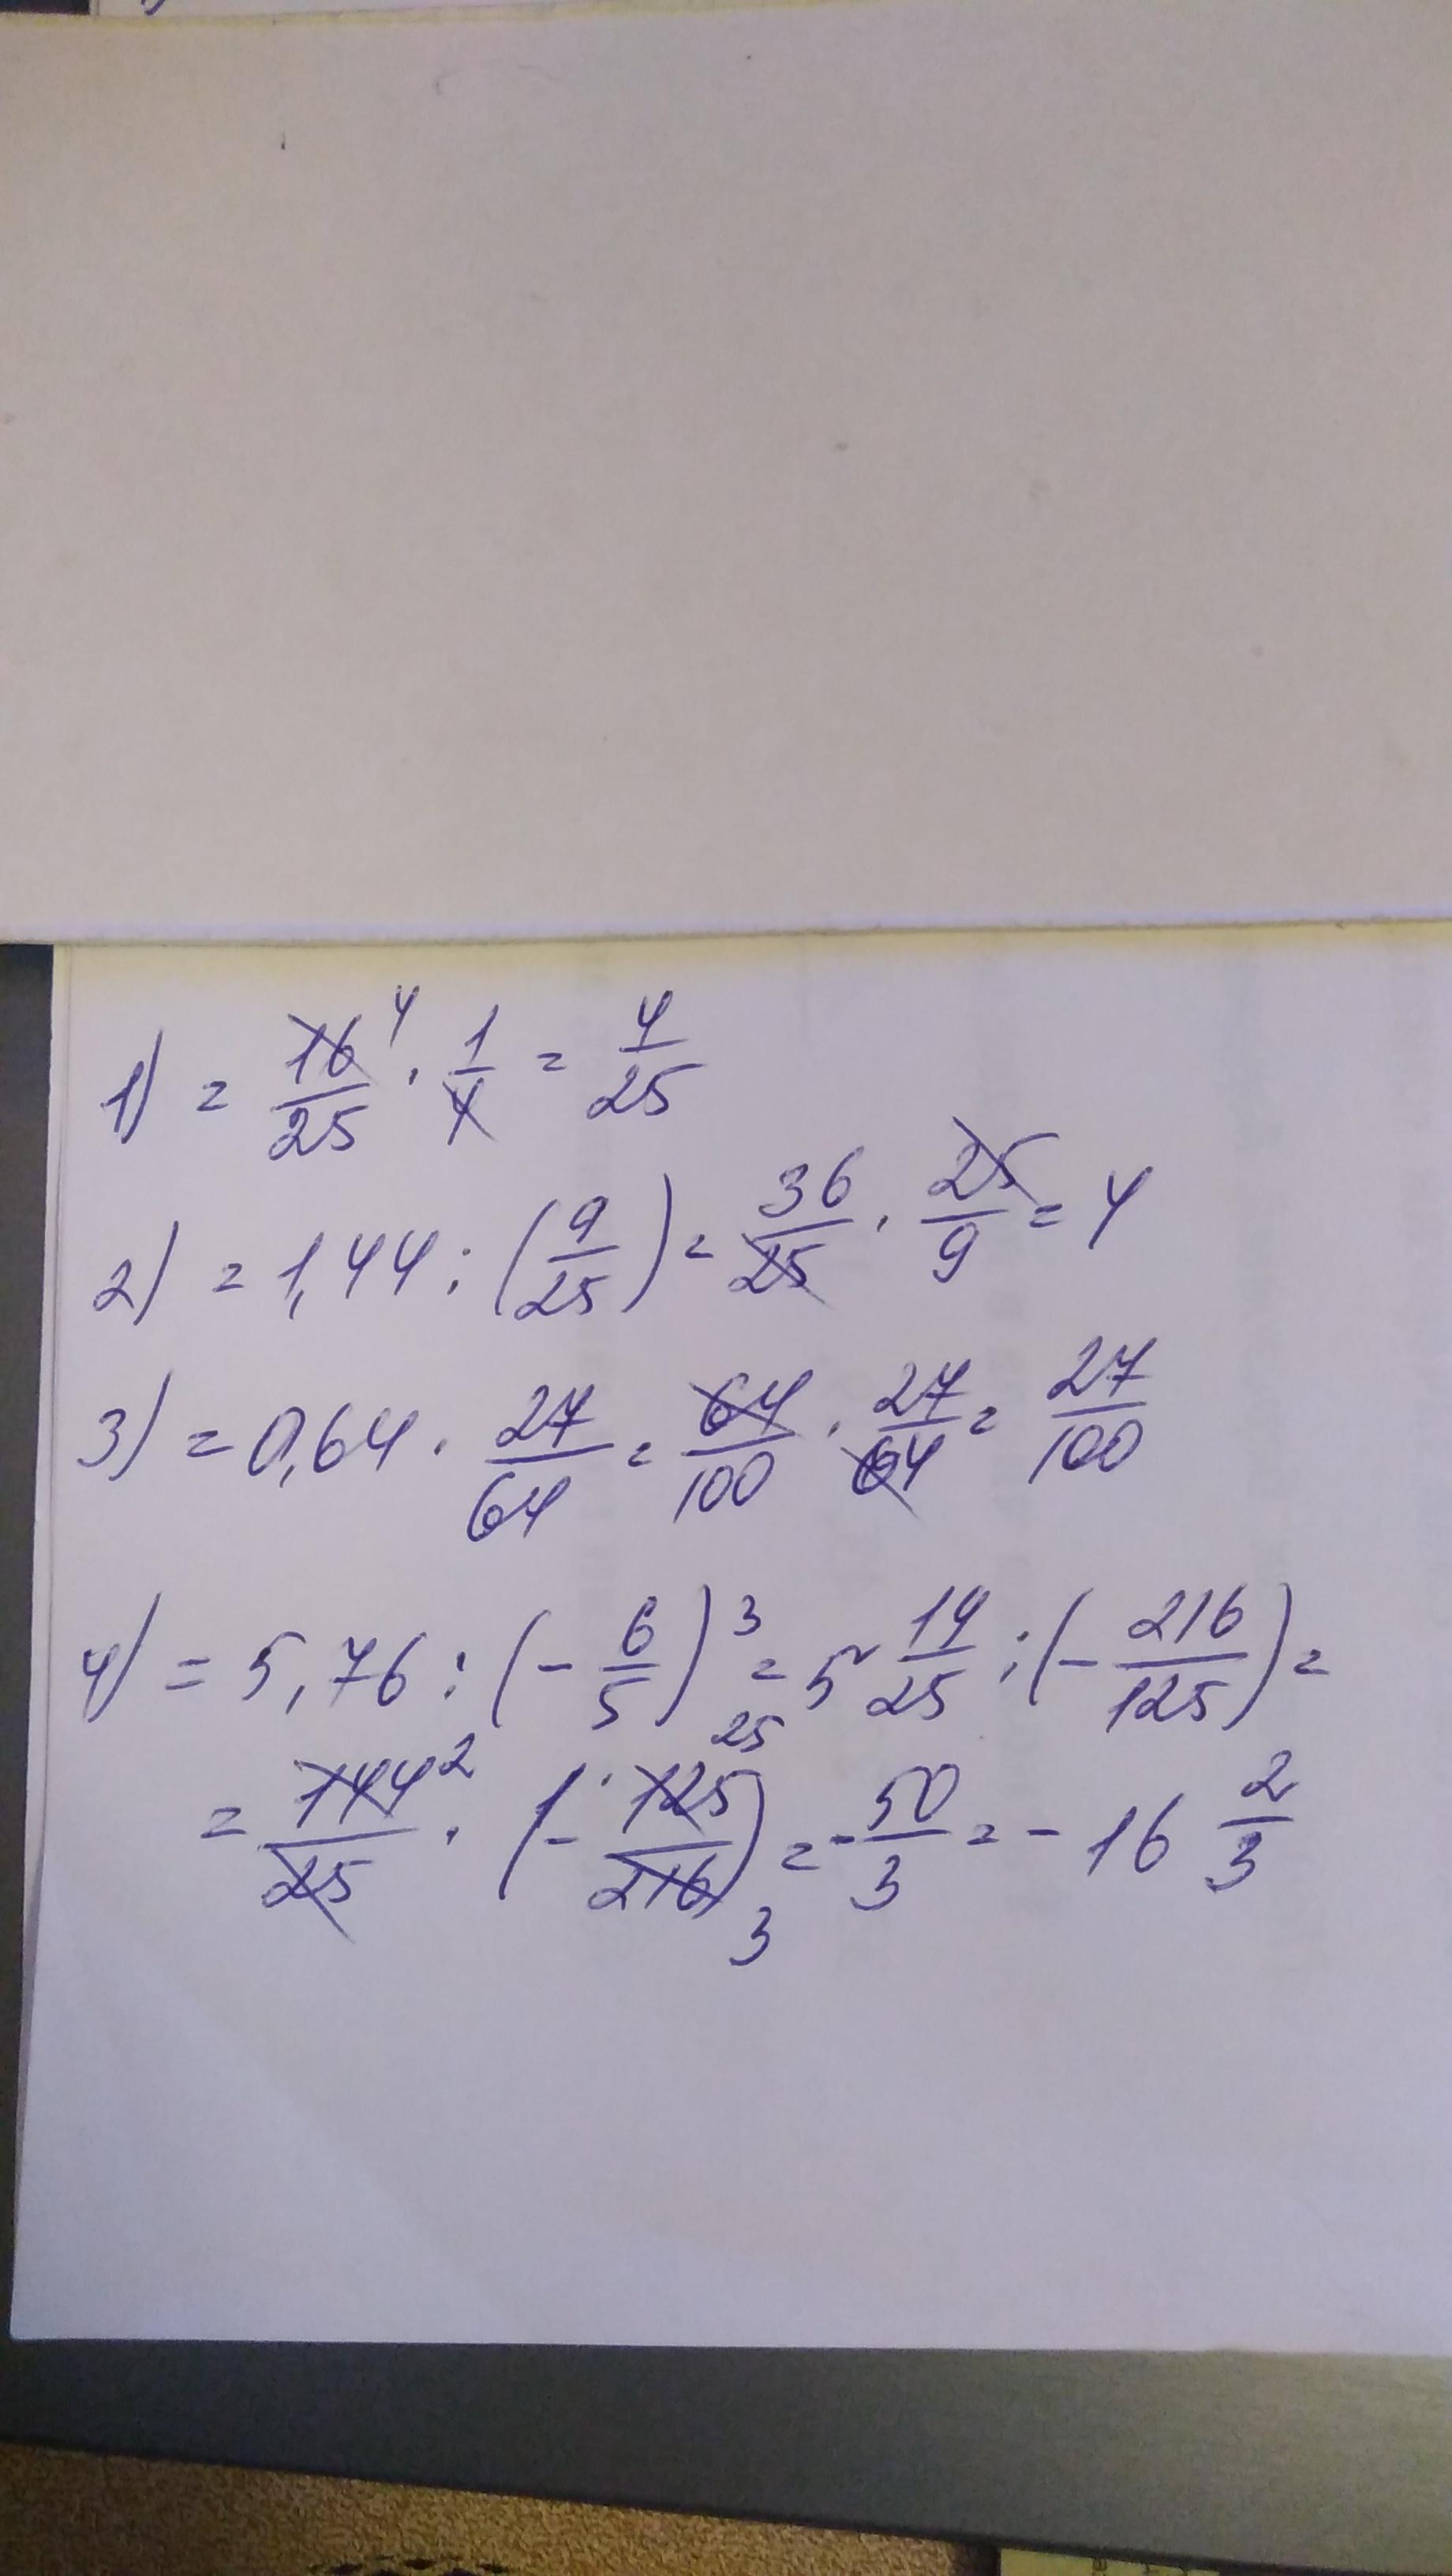 1) = 16/25 4 · 1/4 = 4/25
2) = 1,44 : (9/25) = 36/25 · 25/9 = 4
3) = 0,64 · 27/64 = 64/100 · 27/64 = 27/100
4) = 5,76 : (- 6/5)³ = 5 19/25 : (- 216/125) =
= 144/25 2 · (- 125/216) 25 3 = - 50/3 = - 16 2/3